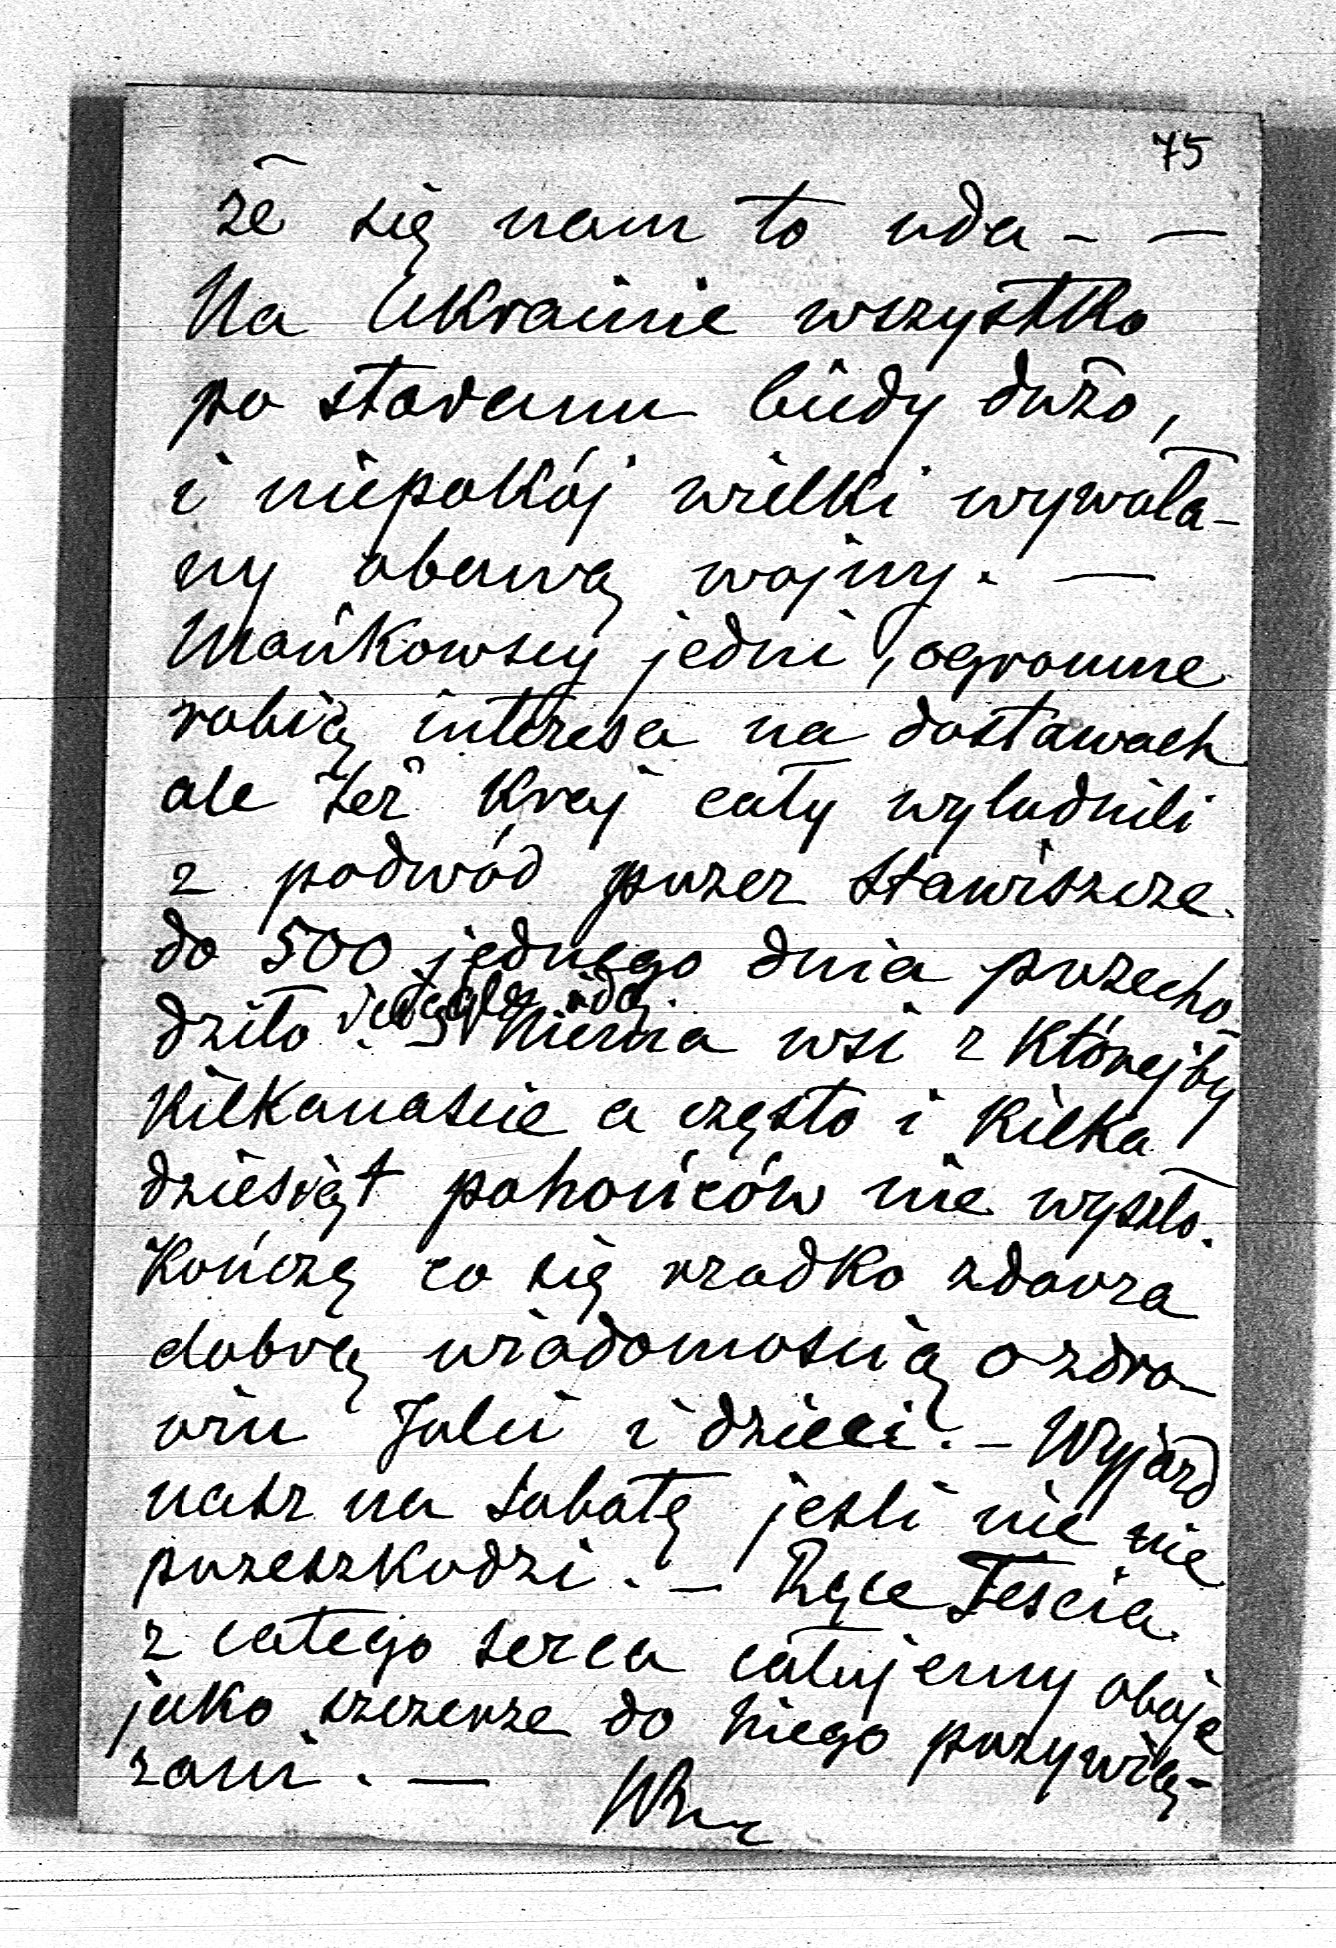 75
że się nam to uda - —
Na Ukrainie wszystko
po staremu biédy dużo,
i niepokój wielki wywoła-
ny obawą wojny. —
Mańkowscy jedni, ogromne
robią interesa na dostawach
ale też kraj cały wyludnili
z podwód przez Stawiszcze
do 500 jednego dnia przecho-
i ciągle idą.
dziło. - Niema wsi z którejby
kilkanaście a często i kilka
dziesiąt pohońców nie wyszło.
Kończę co się rzadko zdarza
dobrą wiadomością o zdro-
wiu Julii i dzieci. - Wyjazd
nasz na Sobotę jeśli nic nie
przeszkodzi. - Ręce Teścia
z całego serca całujemy oboje
jako szczerze do niego przywią-
zani. —